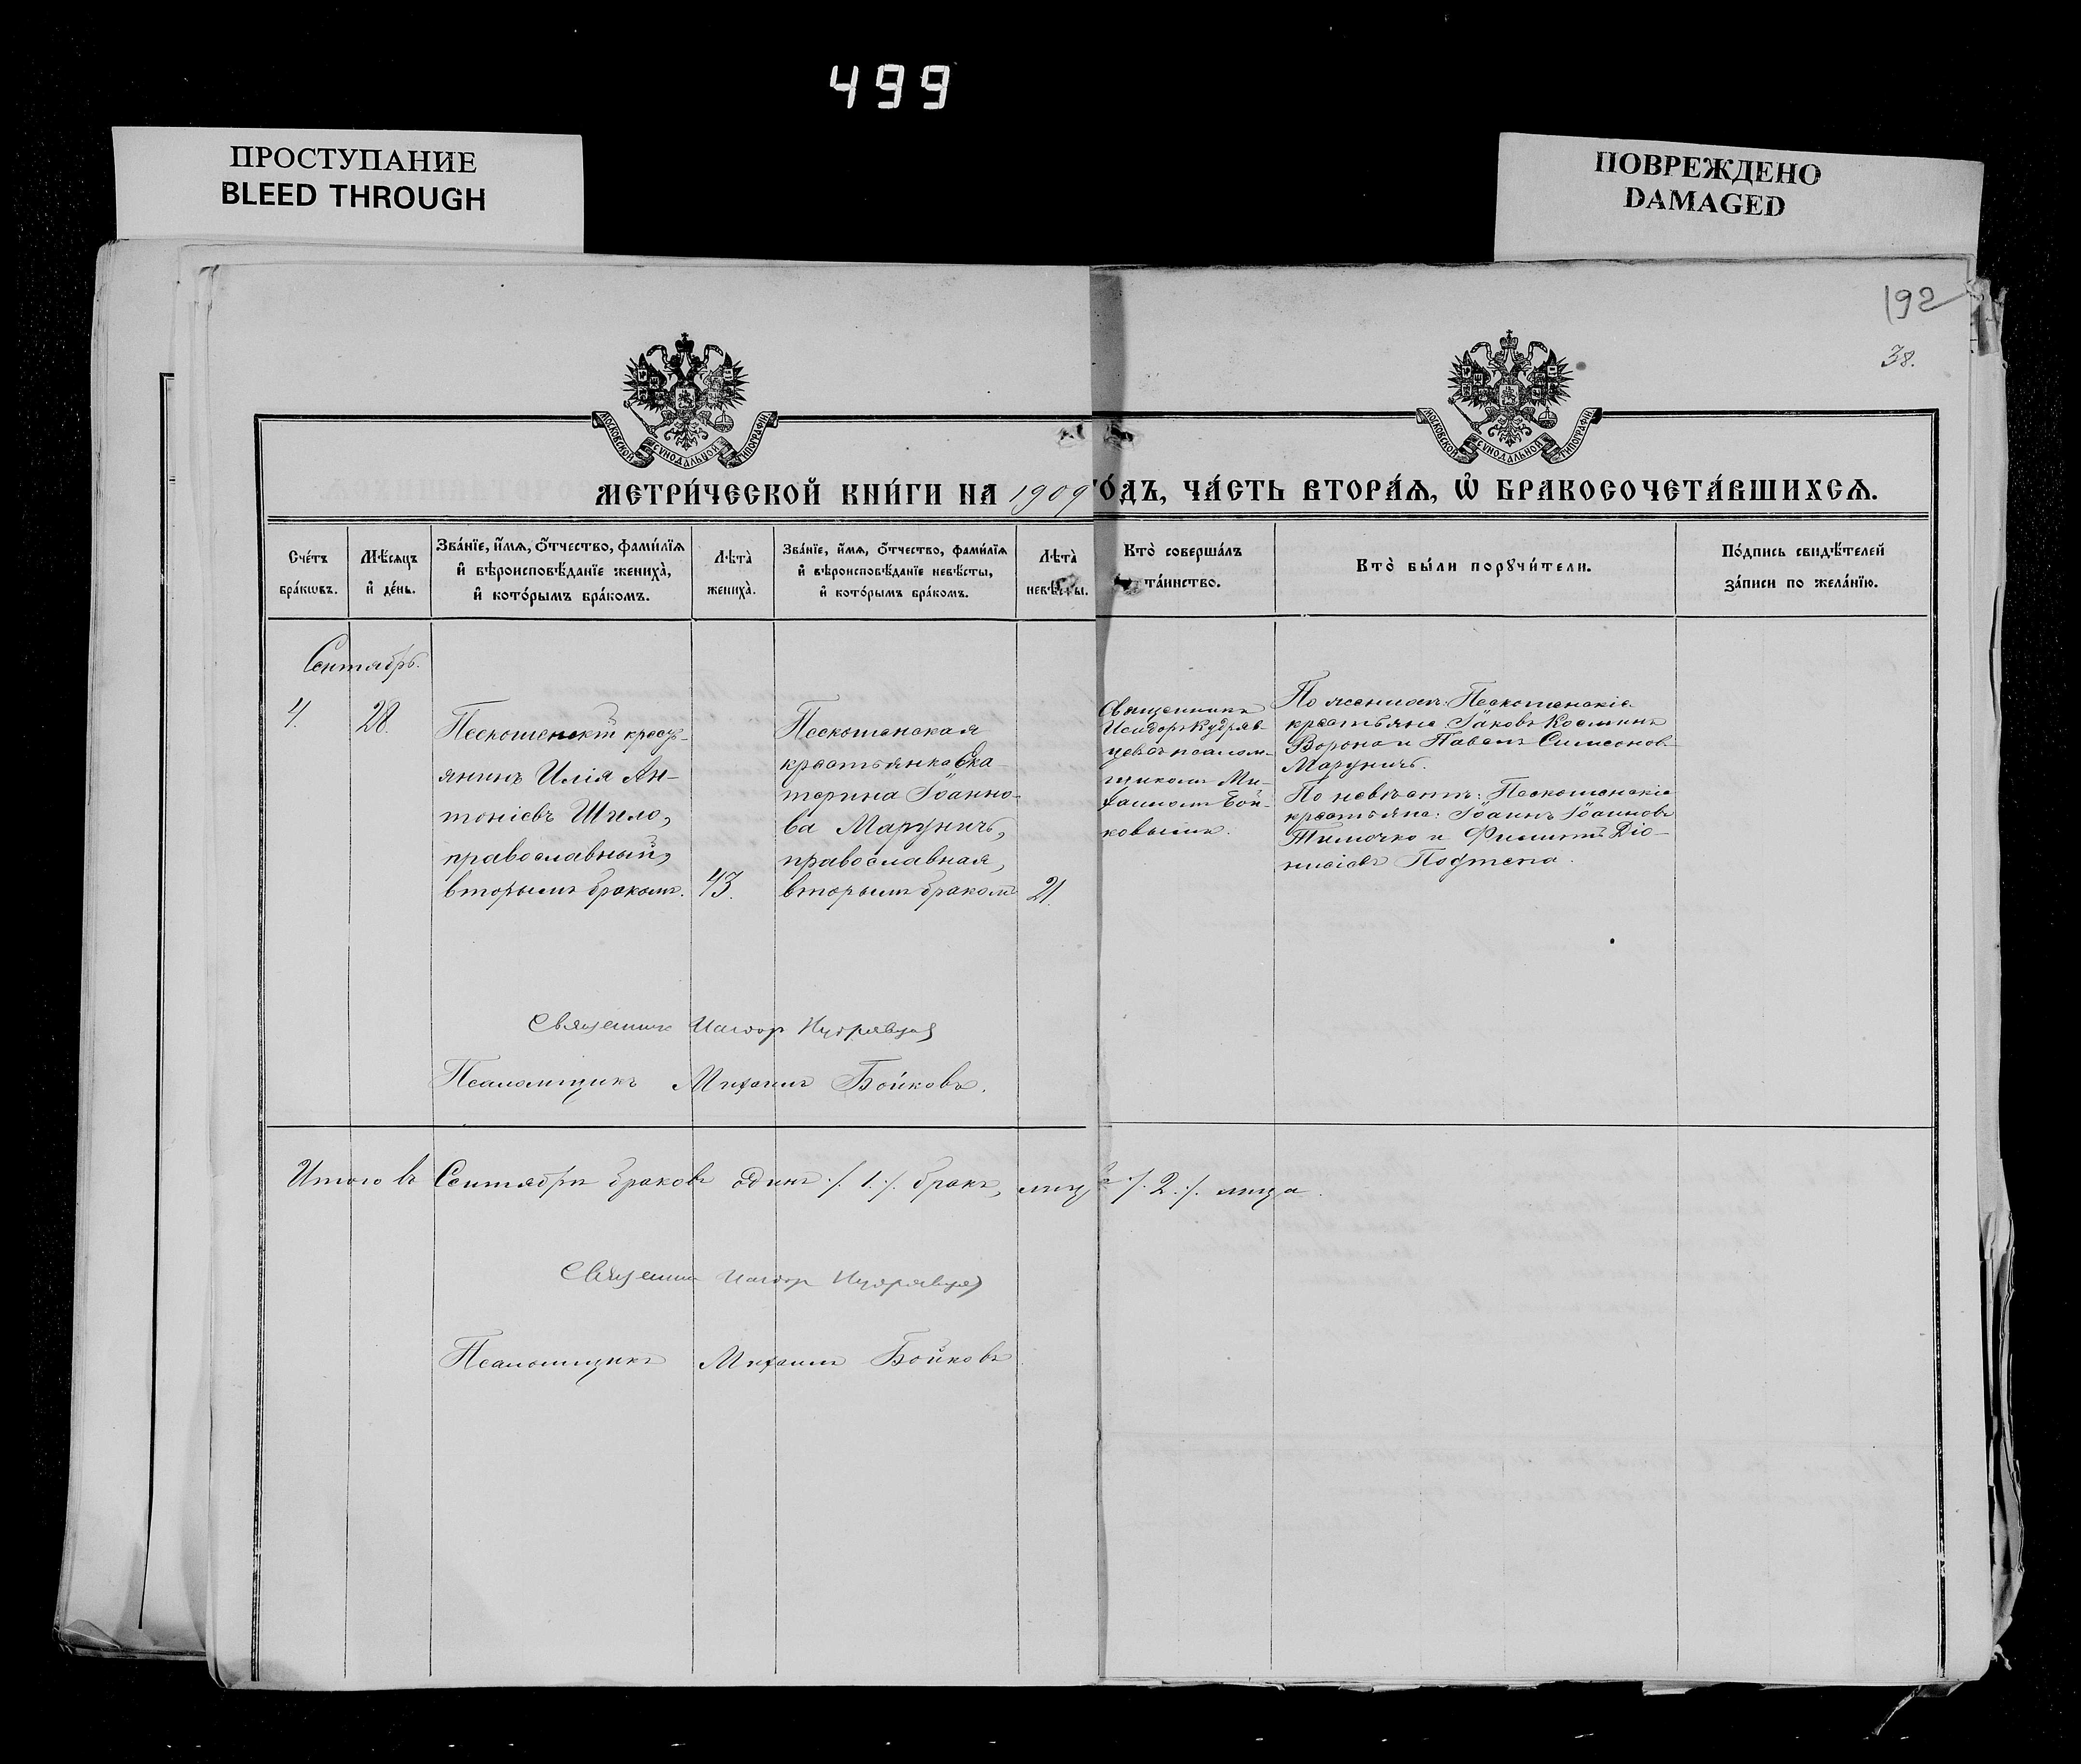 499
ПРОСТУПАНИЕ
BLEED THROUGH
ПОВРЕЖДЕНО
DAMAGED
192
38.
МОСКОВСКОЙ СУНОДАЛЬНОЙ ТИПОГРАФІИ
МОСКОВСКОЙ СУНОДАЛЬНОЙ ТИПОГРАФІИ
МЕТРИ́ЧЕСКОЙ КНИ́ГИ НА 1909 ГО́ДЪ, ЧА́СТЬ ВТОРА́Ѧ, Ѽ БРАКОСОЧЕТА́ВШИХСѦ.
Сче́тъ
бра́кѡвъ.
Мѣ́сѧцъ
и҆ де́нь.
Зва́нїе, и҆́мѧ, ѻ҆́тчество, фами́лїѧ
и҆ вѣроисповѣ́данїе жениха̀,
и҆ кото́рымъ бра́комъ.
Лѣта̀
жениха̀.
Зва́нїе, и҆́мѧ, ѻ҆́тчество, фами́лїѧ
и҆ вѣроисповѣ́данїе невѣ́сты,
и҆ кото́рымъ бра́комъ.
Лѣта̀
невѣ́сты.
Кто̀ соверша́лъ
та́инство.
Кто̀ бы́ли порꙋчи́тели.
По́дпись свидѣ́телей
за́писи по жела́нїю.
Сентябрь.
4.
28.
Пескошенскій кресть-
янинъ Илія Ан-
тоніевъ Шило,
православный,
вторымъ бракомъ.
43.
Пескошенская
крестьянка Ека-
терина Іоанно-
ва Маруничъ,
православная,
вторымъ бракомъ
21.
Священникъ
Исидоръ Кудряв-
цевъ съ псалом-
щикомъ Ми-
хаиломъ Бой-
ковымъ.
По женихѣ: Пескошенскіе
крестьяне Іаковъ Косминъ
Ворона и Павелъ Симеоновъ
Маруничъ.
По невѣстѣ: Пескошенскіе
крестьяне: Іоаннъ Іоанновъ
Тимочко и Филиппъ Діо-
нисіевъ
Священникъ Исидор Кудрявцев
Псаломщикъ Михаилъ Бойковъ.
Итого въ Сентябрѣ браковъ одинъ ./. 1 ./. бракъ, лицъ ./. 2 ./. лица.
Священник Исидор Кудрявцев
Псаломщикъ Михаилъ Бойковъ